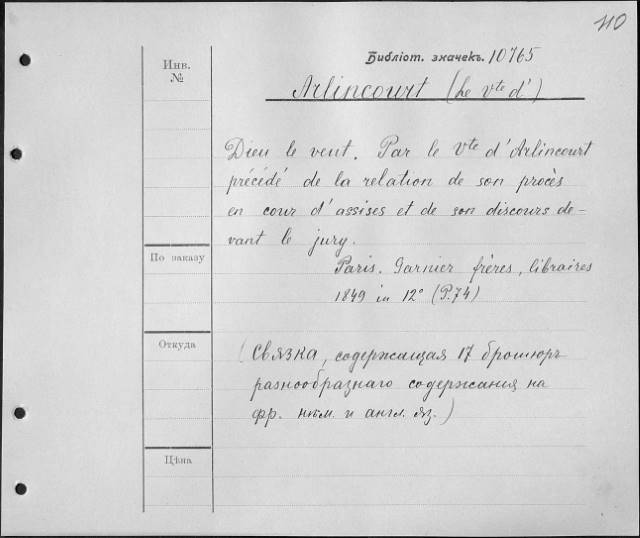 110
Библіот. значекъ. 10765
Инв.
№
Arlincourt (Le Vte d')
Dieu le veut. Par le Vte d'Arlincourt
précédé de la relation de son procès
en cour d'assises et de son discours de-
vant le jury.
По заказу
Paris. Garnier frères, libraires
1849 in 12° (P. 74)
Откуда
(Связка, содержащая 17 брошюръ
разнообразнаго содержания на
фр. нѣм. и англ. яз.)
Цѣна